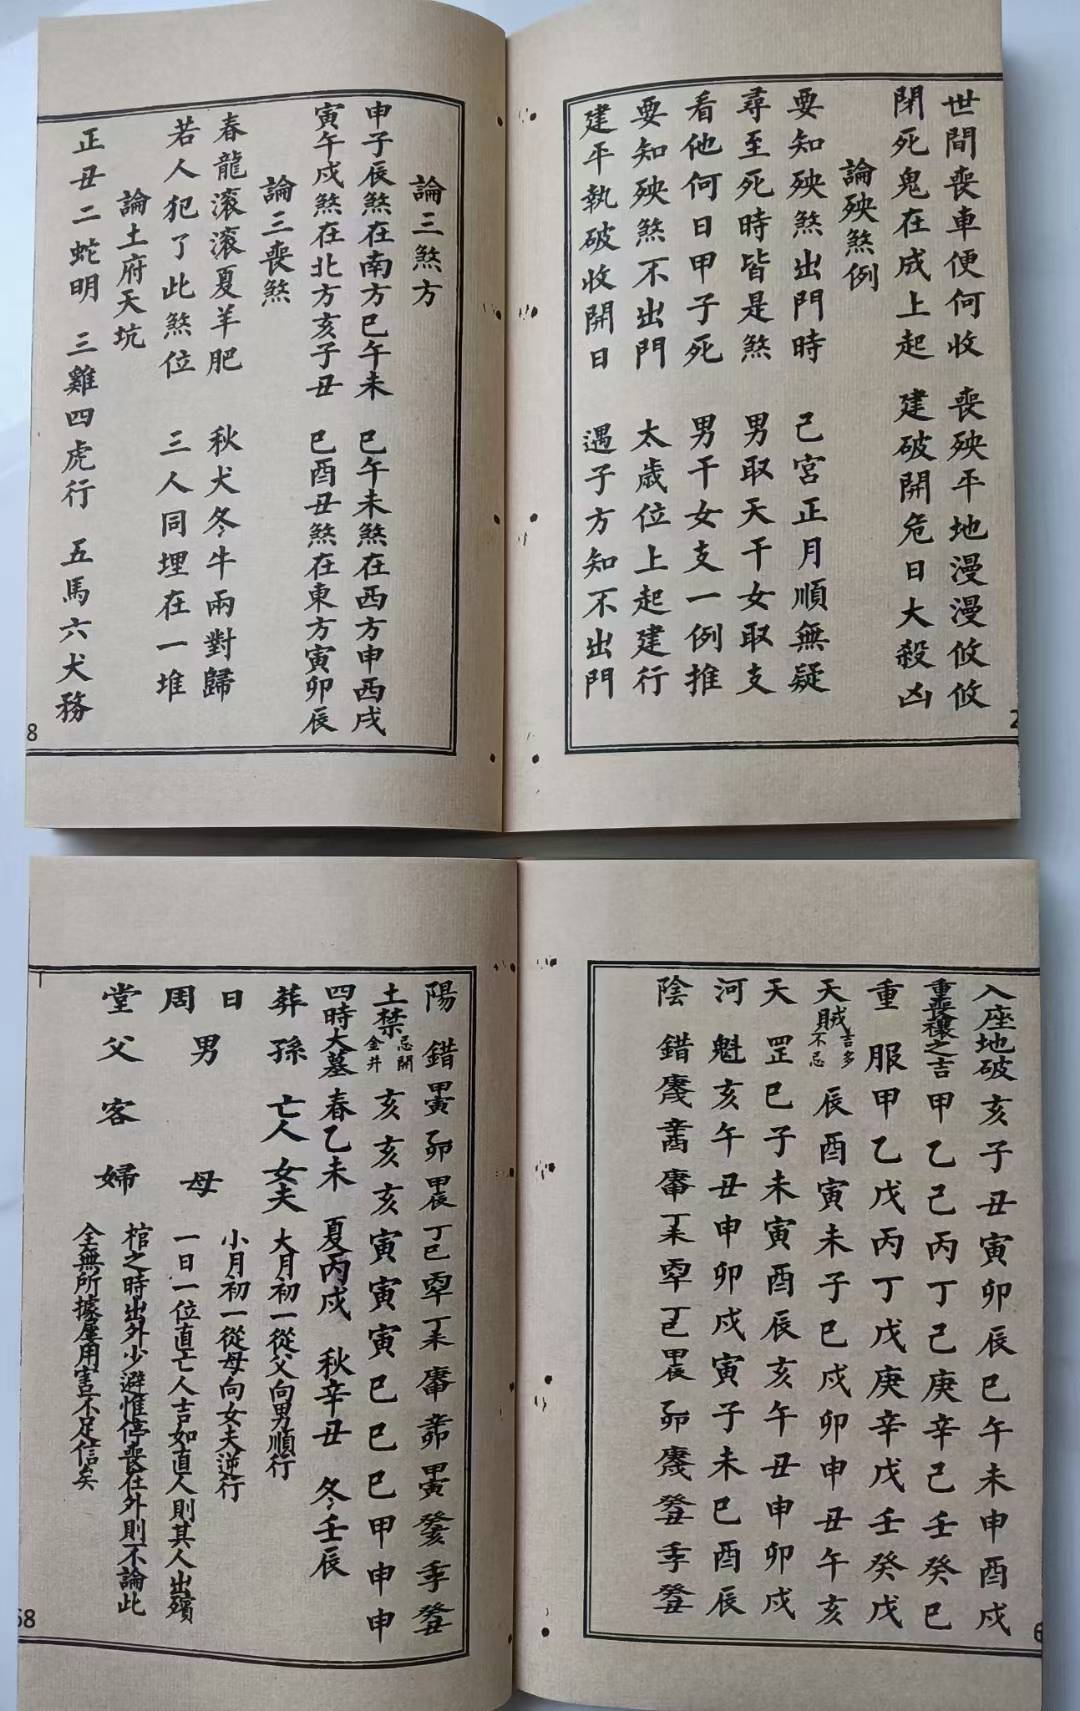 世間喪車便何收　喪殃平地漫漫攸攸
閉死鬼在成上起　建破開危日大殺凶
論殃煞例
要知殃煞出門時　己宮正月順無疑
尋至死時皆是煞　男取天干女取支
看他何日甲子死　男干女支一例推
要知殃煞不出門　太歲位上起建行
建平執破收開日　遇子方知不出門
2
論三煞方
申子辰煞在南方巳午未　巳午未煞在西方申酉戌
寅午戌煞在北方亥子丑　巳酉丑煞在東方寅卯辰
論三喪煞
春龍滾滾夏羊肥　秋犬冬牛兩對歸
若人犯了此煞位　三人同埋在一堆
論土府天坑
正丑二蛇明　三雞四虎行　五馬六犬務
8
入座地破亥子丑寅卯辰巳午未申酉戌
重喪禳之吉甲乙己丙丁己庚辛己壬癸己
重服甲乙戊丙丁戊庚辛戊壬癸戊
天賊吉多不忌辰酉寅未子巳戌卯申丑午亥
天罡巳子未寅酉辰亥午丑申卯戌
河魁亥午丑申卯戌寅子未巳酉辰
陰錯庚戌辛酉庚申丁未丙午丁巳甲辰乙卯庚戌癸丑壬子癸丑
6
陽錯甲寅乙卯甲辰丁巳丙午丁未庚申辛卯甲寅癸亥壬子癸丑
土禁忌開金井亥亥亥寅寅寅巳巳巳甲申申
四時大墓春乙未　夏丙戌　秋辛丑　冬壬辰
葬孫亡人女夫　大月初一從父向男順行
日　小月初一從母向女夫逆行
周男母　一日一位直亡人吉如直人則其人出殯
堂父客婦　棺之時出外少避惟停喪在外則不論此
全無所據屢用害不足信矣
68